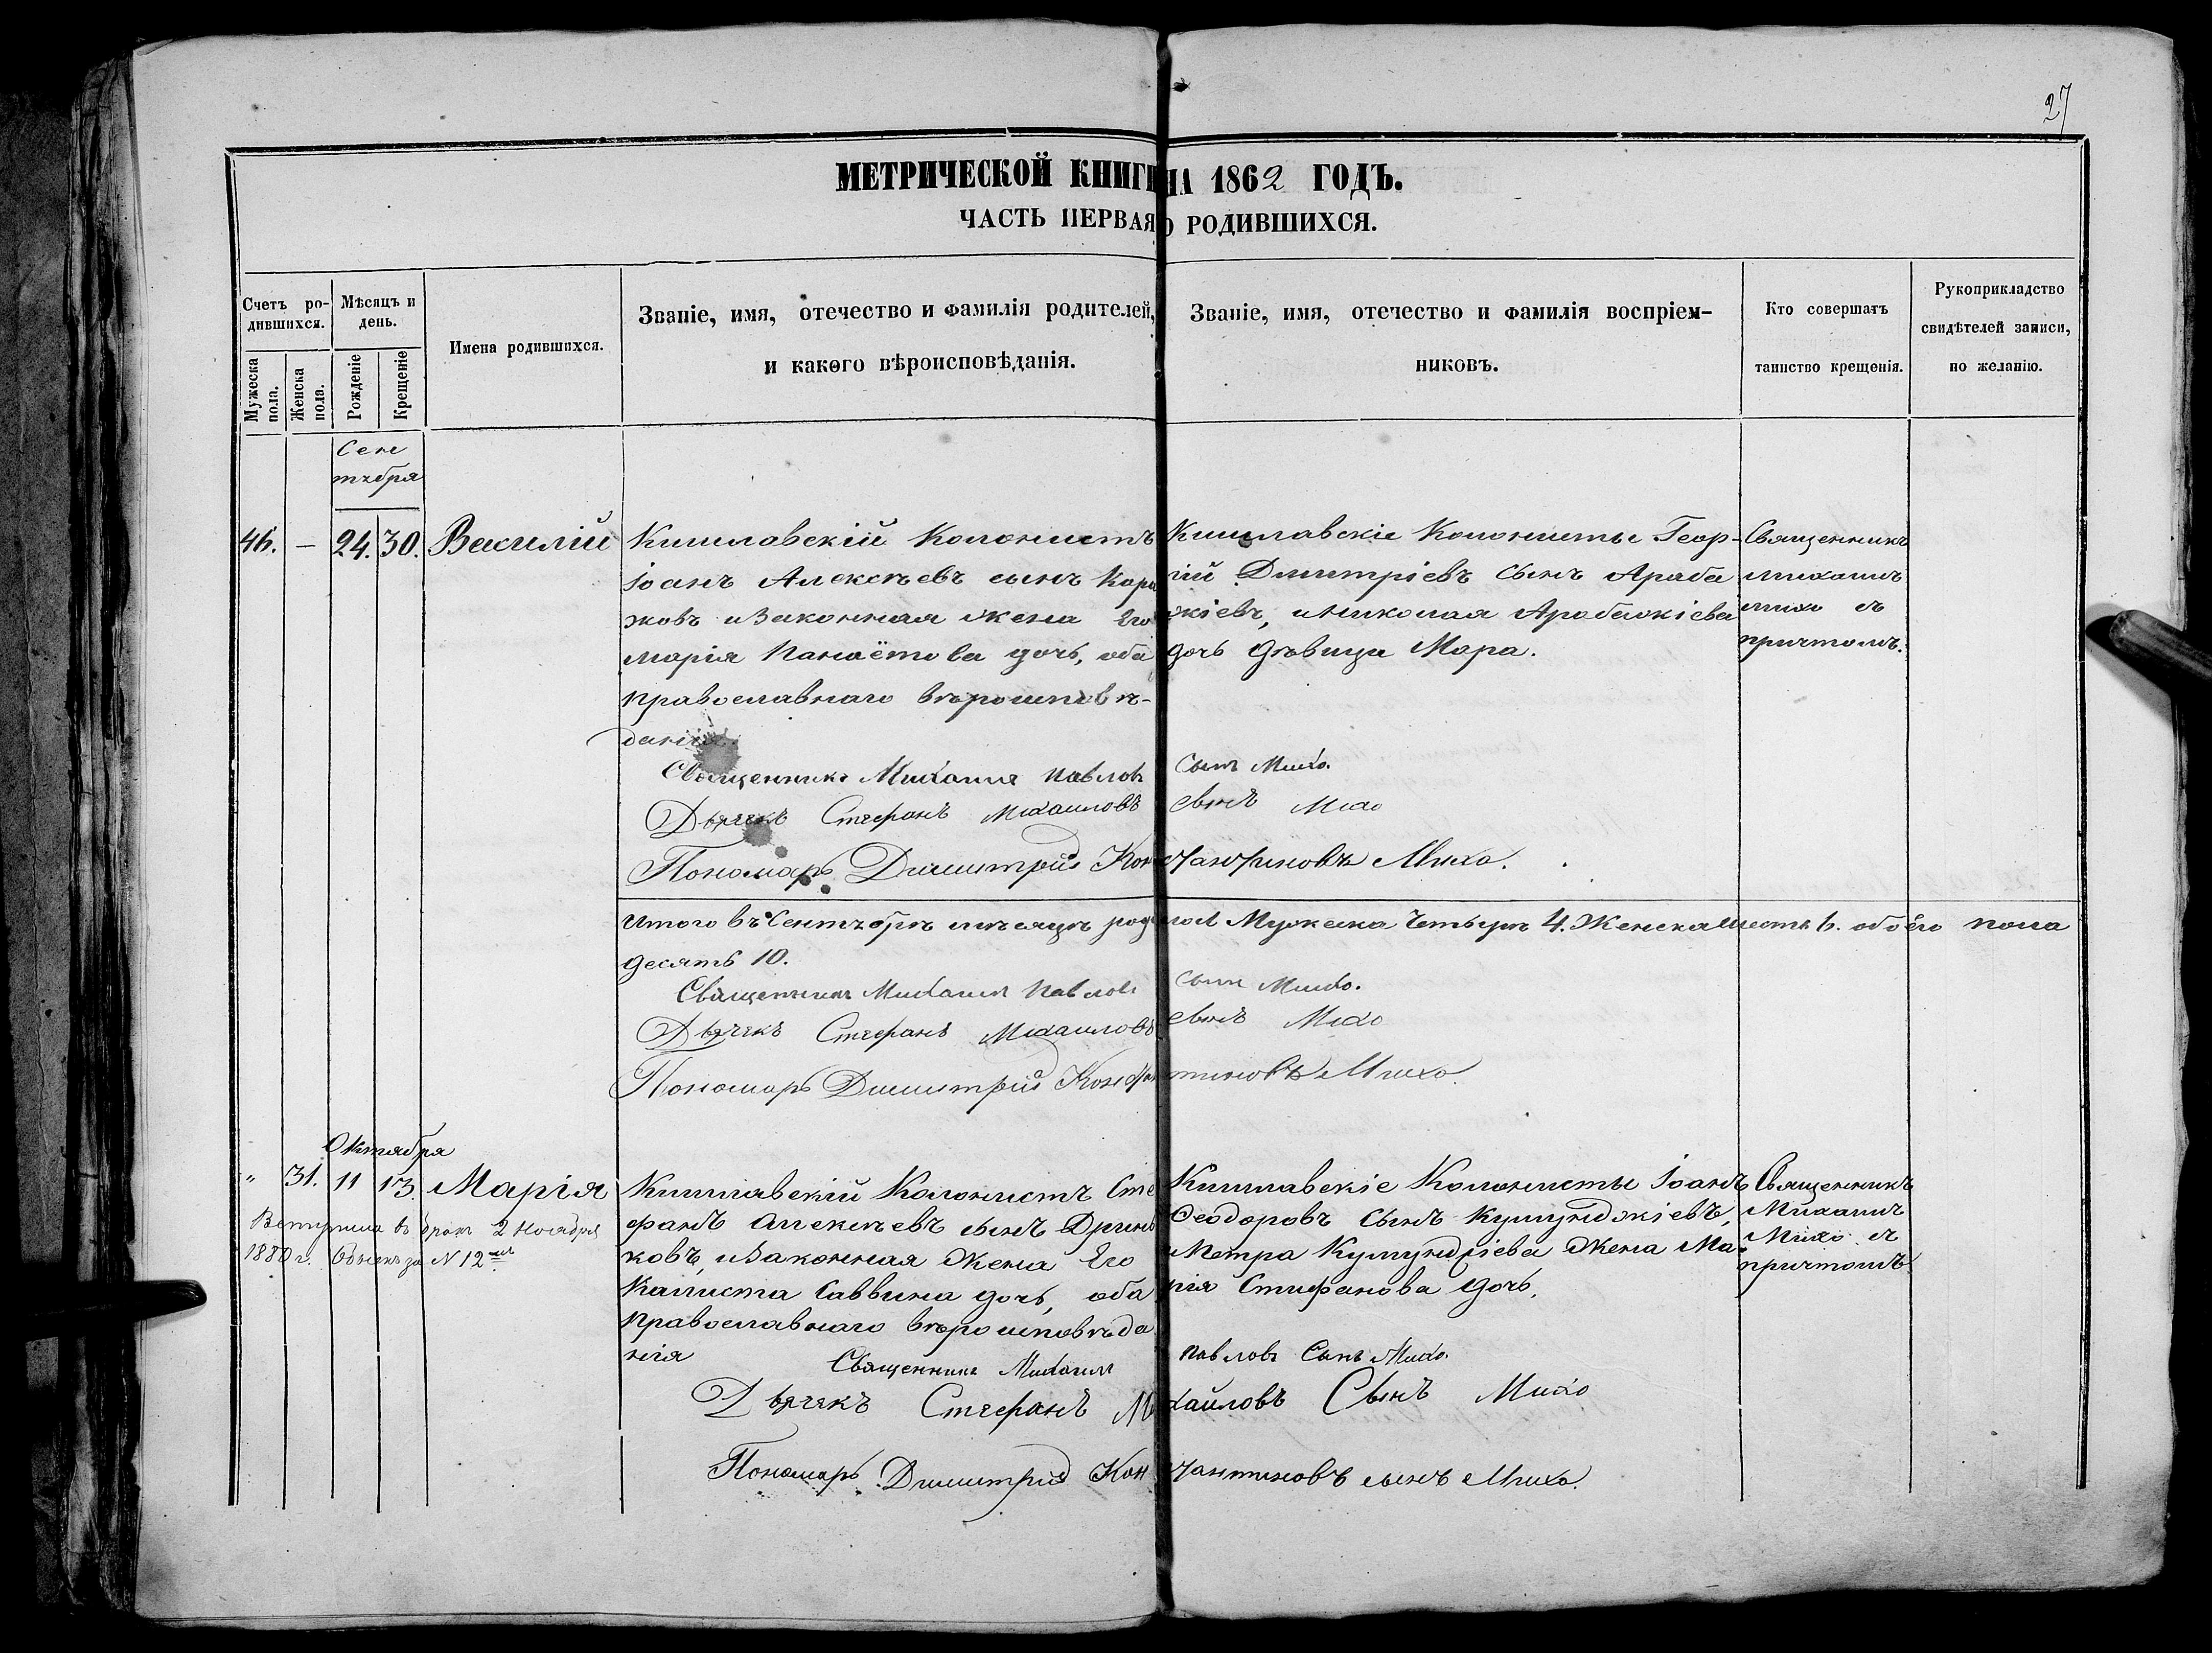 27
МЕТРИЧЕСКОЙ КНИГИ НА 1862 ГОДЪ.
ЧАСТЬ ПЕРВАЯ О РОДИВШИХСЯ.
Счетъ ро-
дившихся.
Мужеска
пола.
Женска
пола.
Мѣсяцъ и
день.
Рожденіе
Крещеніе
Имена родившихся.
Званіе, имя, отечество и фамилія родителей,
и какого вѣроисповѣданія.
Званіе, имя, отечество и фамилія воспріем-
никовъ.
Кто совершалъ
таинство крещенія.
Рукоприкладство
свидѣтелей записи,
по желанію.
Сен
тября
46. — 24. 30. Василій
Кишлавскій Колонистъ
Іоанъ Алексѣевъ сынъ Кара
жовъ и Законная Жена Его
Марія Панаётова дочь, оба
православнаго вѣроисповѣ-
данія.
Кишлавскіе Колонисты Геор-
гій Димитріевъ Сынъ Араба
жіевъ, и Николая Арабажіева
дочь дѣвица Мара.
Священникъ
Михаилъ
Михо съ
причтомъ.
Священникъ Михаилъ Павловъ Сынъ Михо.
Дьячекъ Стефанъ Михаиловъ Сынъ Михо
Пономарь Димитрій Константиновъ Михо.
Итого въ Сентябрѣ мѣсяцѣ родилось Мужеска Четыре 4. Женска Шесть 6. обоего пола
десять 10.
Священникъ Михаилъ Павловъ Сынъ Михо.
Дьячекъ Стефанъ Михаиловъ Сынъ Михо
Пономарь Димитрій Константиновъ Михо.
Октября
" 31. 11 13. Марія
Вступила въ бракъ 2 Ноября
1880 г. Обыскъ за № 12
Кишлавскій Колонистъ Сте
фанъ Алексѣевъ сынъ
ковъ, и Законная Жена Его
Калиста Саввина дочь, оба
православнаго вѣроисповѣда
нія
Кишлавскіе Колонисты Іоанъ
Ѳеодоровъ Сынъ Куюмджіевъ,
Петра Жена Ма-
рія Стифанова дочь.
Священникъ
Михаилъ
Михо съ
причтомъ.
Священникъ Михаилъ Павловъ Сынъ Михо.
Дьячекъ Стефанъ Михайловъ Сынъ Михо
Пономарь Димитрій Константиновъ сынъ Михо.